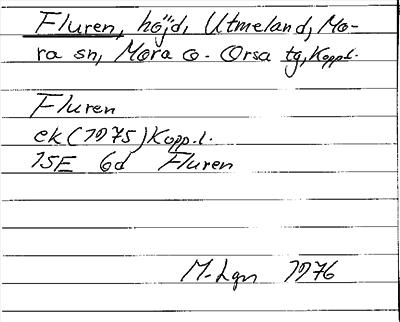 Fluren, höjd, Utmeland, Mo-
ra sn, Mora o. Orsa tg, Kopp.l.
Fluren
ek (1975) Kopp.l.
15E 6d Fluren
M-Lgn 1976